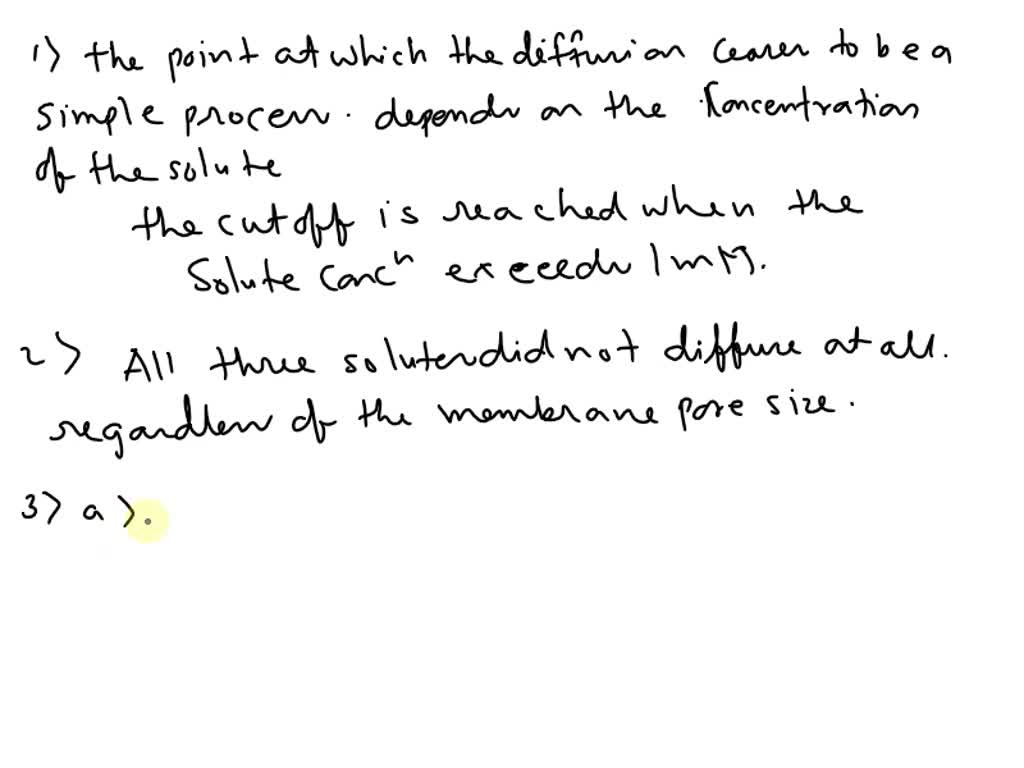 1) the point at which the diffusion ceases to be a
simple process. depends on the concentration
of the solute
the cutoff is reached when the
Solute concⁿ exceeds 1mM.
2) All three solutes did not diffuse at all.
regardless of the membrane pore size.
3) a).